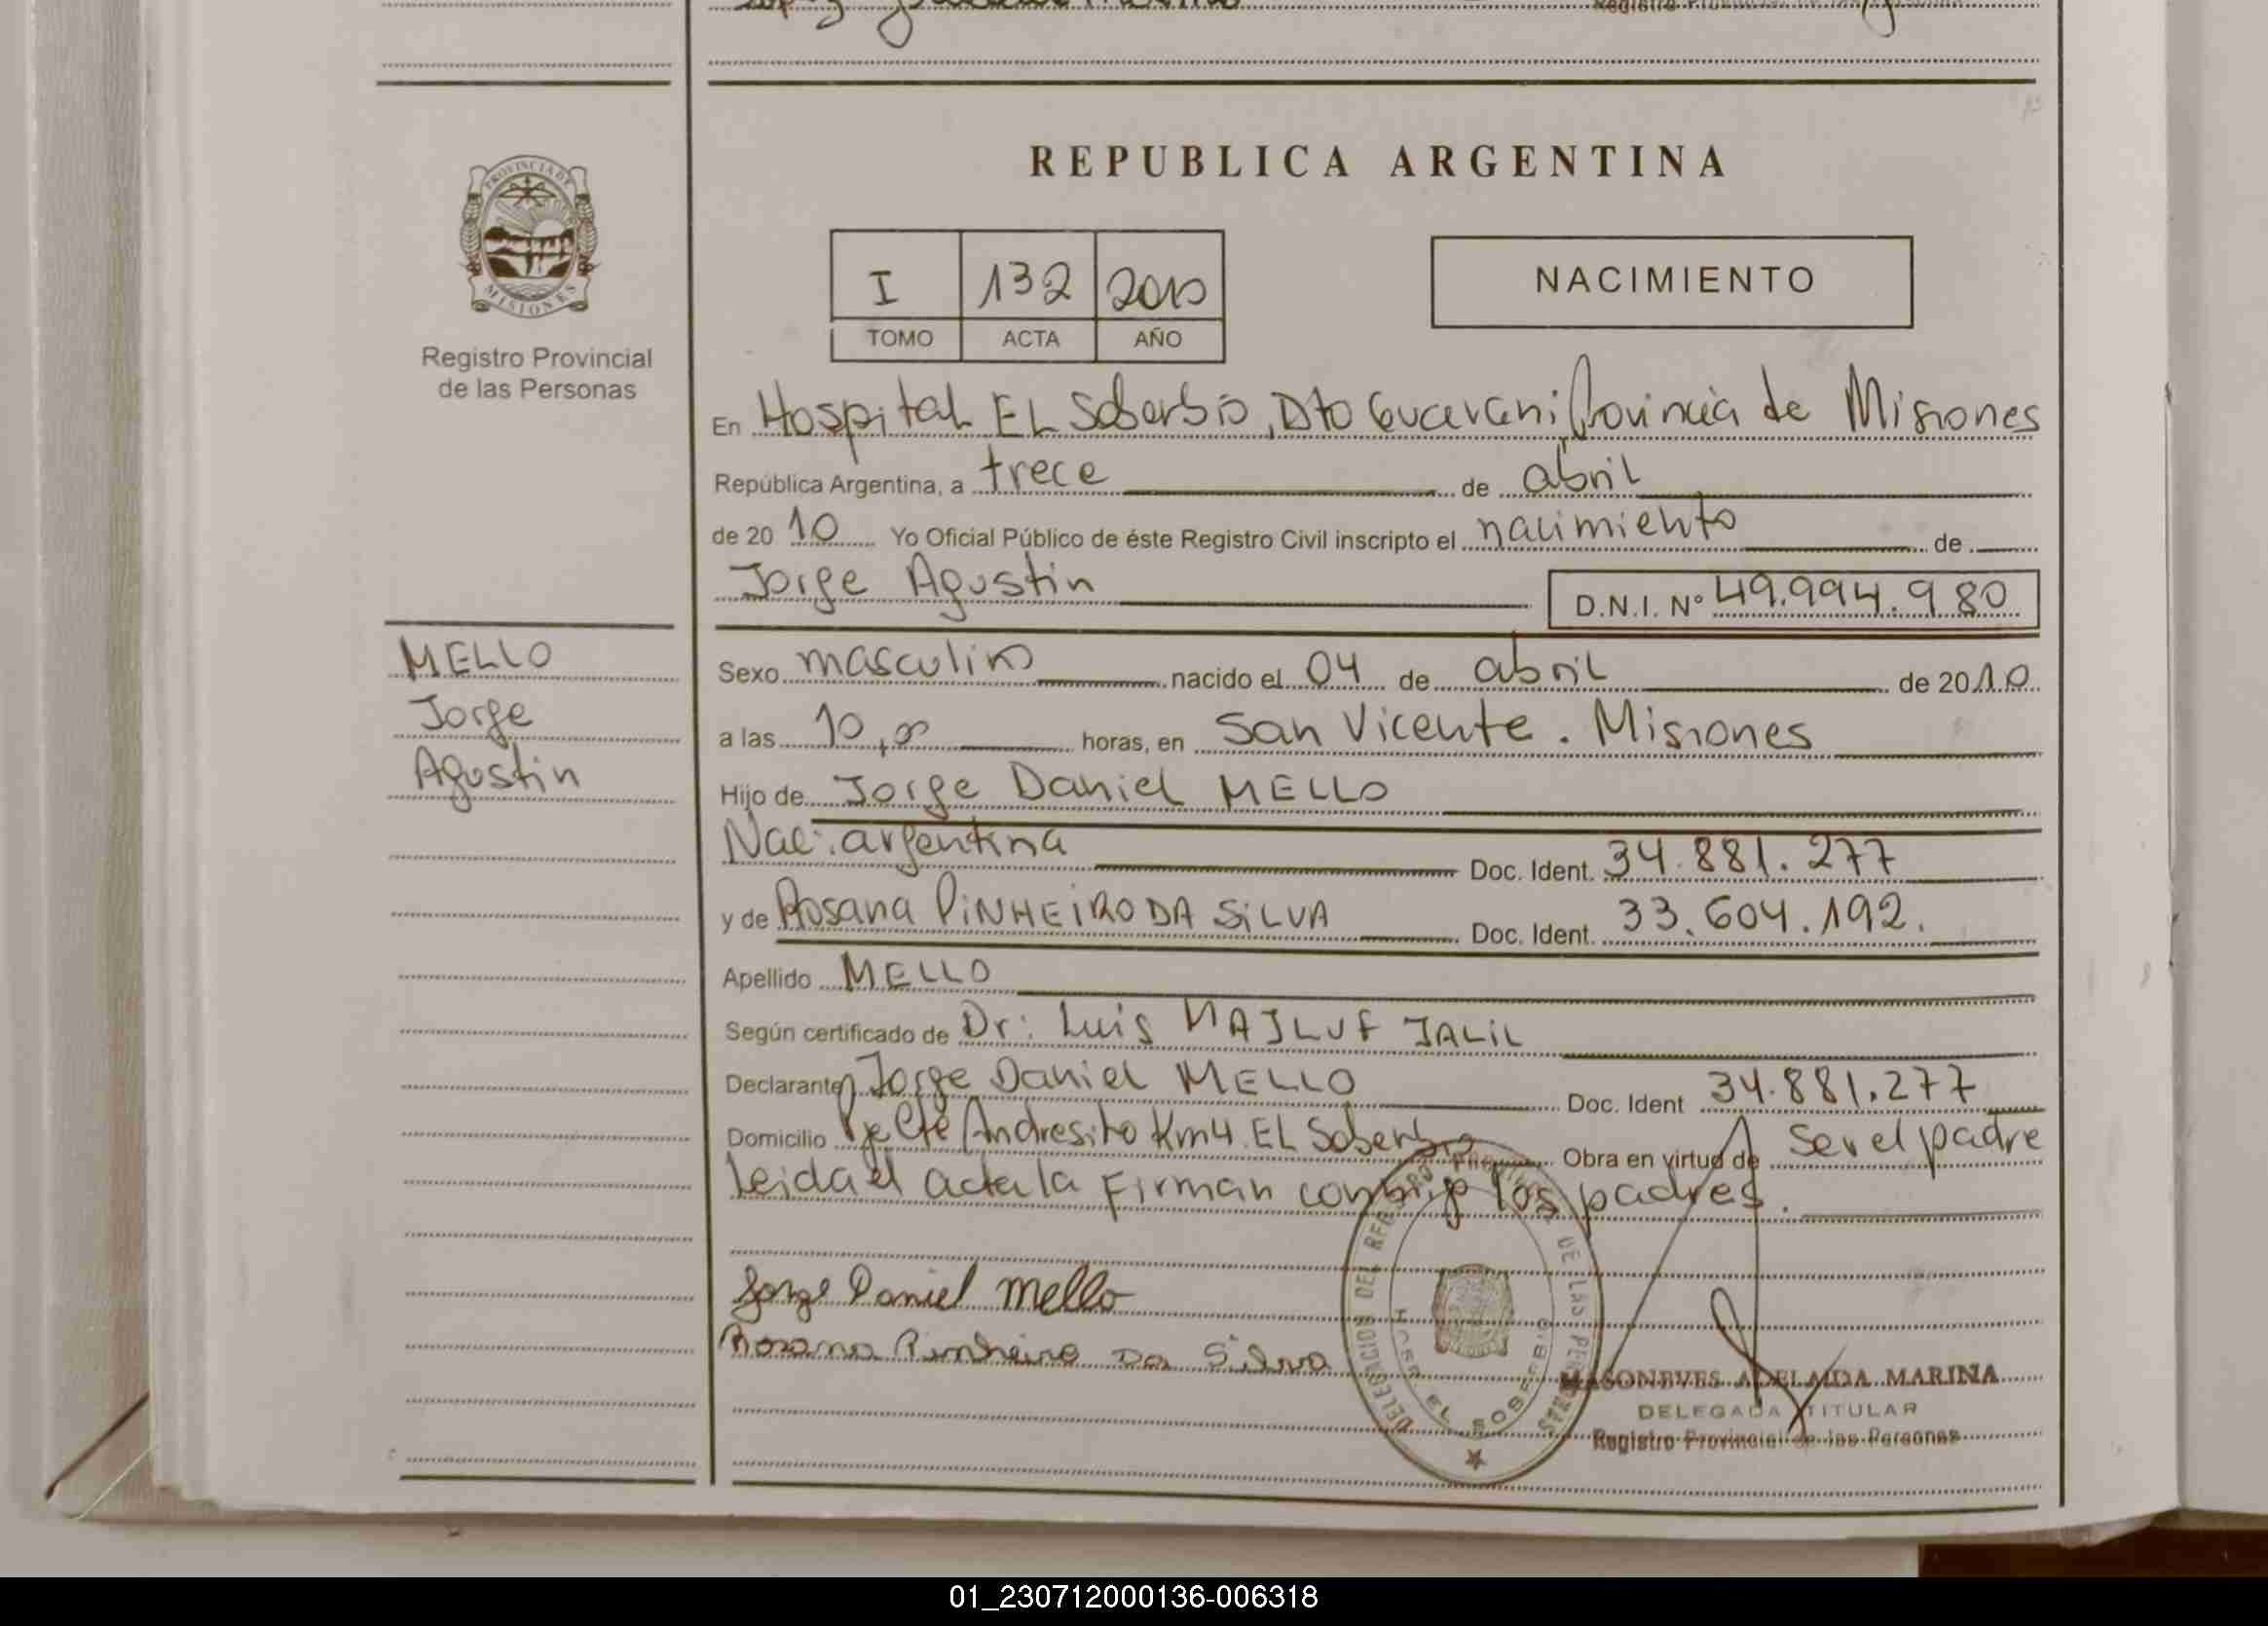 PROVINCIA DE
MISIONES
Registro Provincial
de las Personas
MELLO
Jorge
Agustin
REPUBLICA ARGENTINA
I 132 2010
TOMO ACTA AÑO
NACIMIENTO
En Hospital EL Soberbio, Dto Guarani Provincia de Misiones
República Argentina, a trece de abril
de 2010 Yo Oficial Público de éste Registro Civil inscripto el nacimiento de
Jorge Agustin D.N.I. N° 49.994.980
Sexo masculino nacido el 04 de abril de 2010
a las 10,00 horas, en San Vicente. Misiones
Hijo de Jorge Daniel MELLO
Nac: argentina Doc. Ident. 34.881.277
y de Rosana PINHEIRO DA SILVA Doc. Ident. 33.604.192.
Apellido MELLO
Según certificado de Dr: Luis MAJLUF JALIL
Declarante Jorge Daniel MELLO Doc. Ident 34.881.277
Domicilio Pje Cte Andresito Km4 EL Soberbio Obra en virtud de Ser el padre
Leida el acta la Firman conmigo los padres.
Jorge Daniel Mello
Rosana Pinheiro Da Silva
DELEGACION DEL REGISTRO PROVINCIAL DE LAS PERSONAS
EL SOBERBIO
ADELAIDA MARINA
DELEGADA TITULAR
Registro Provincial de las Personas
01_230712000136-006318